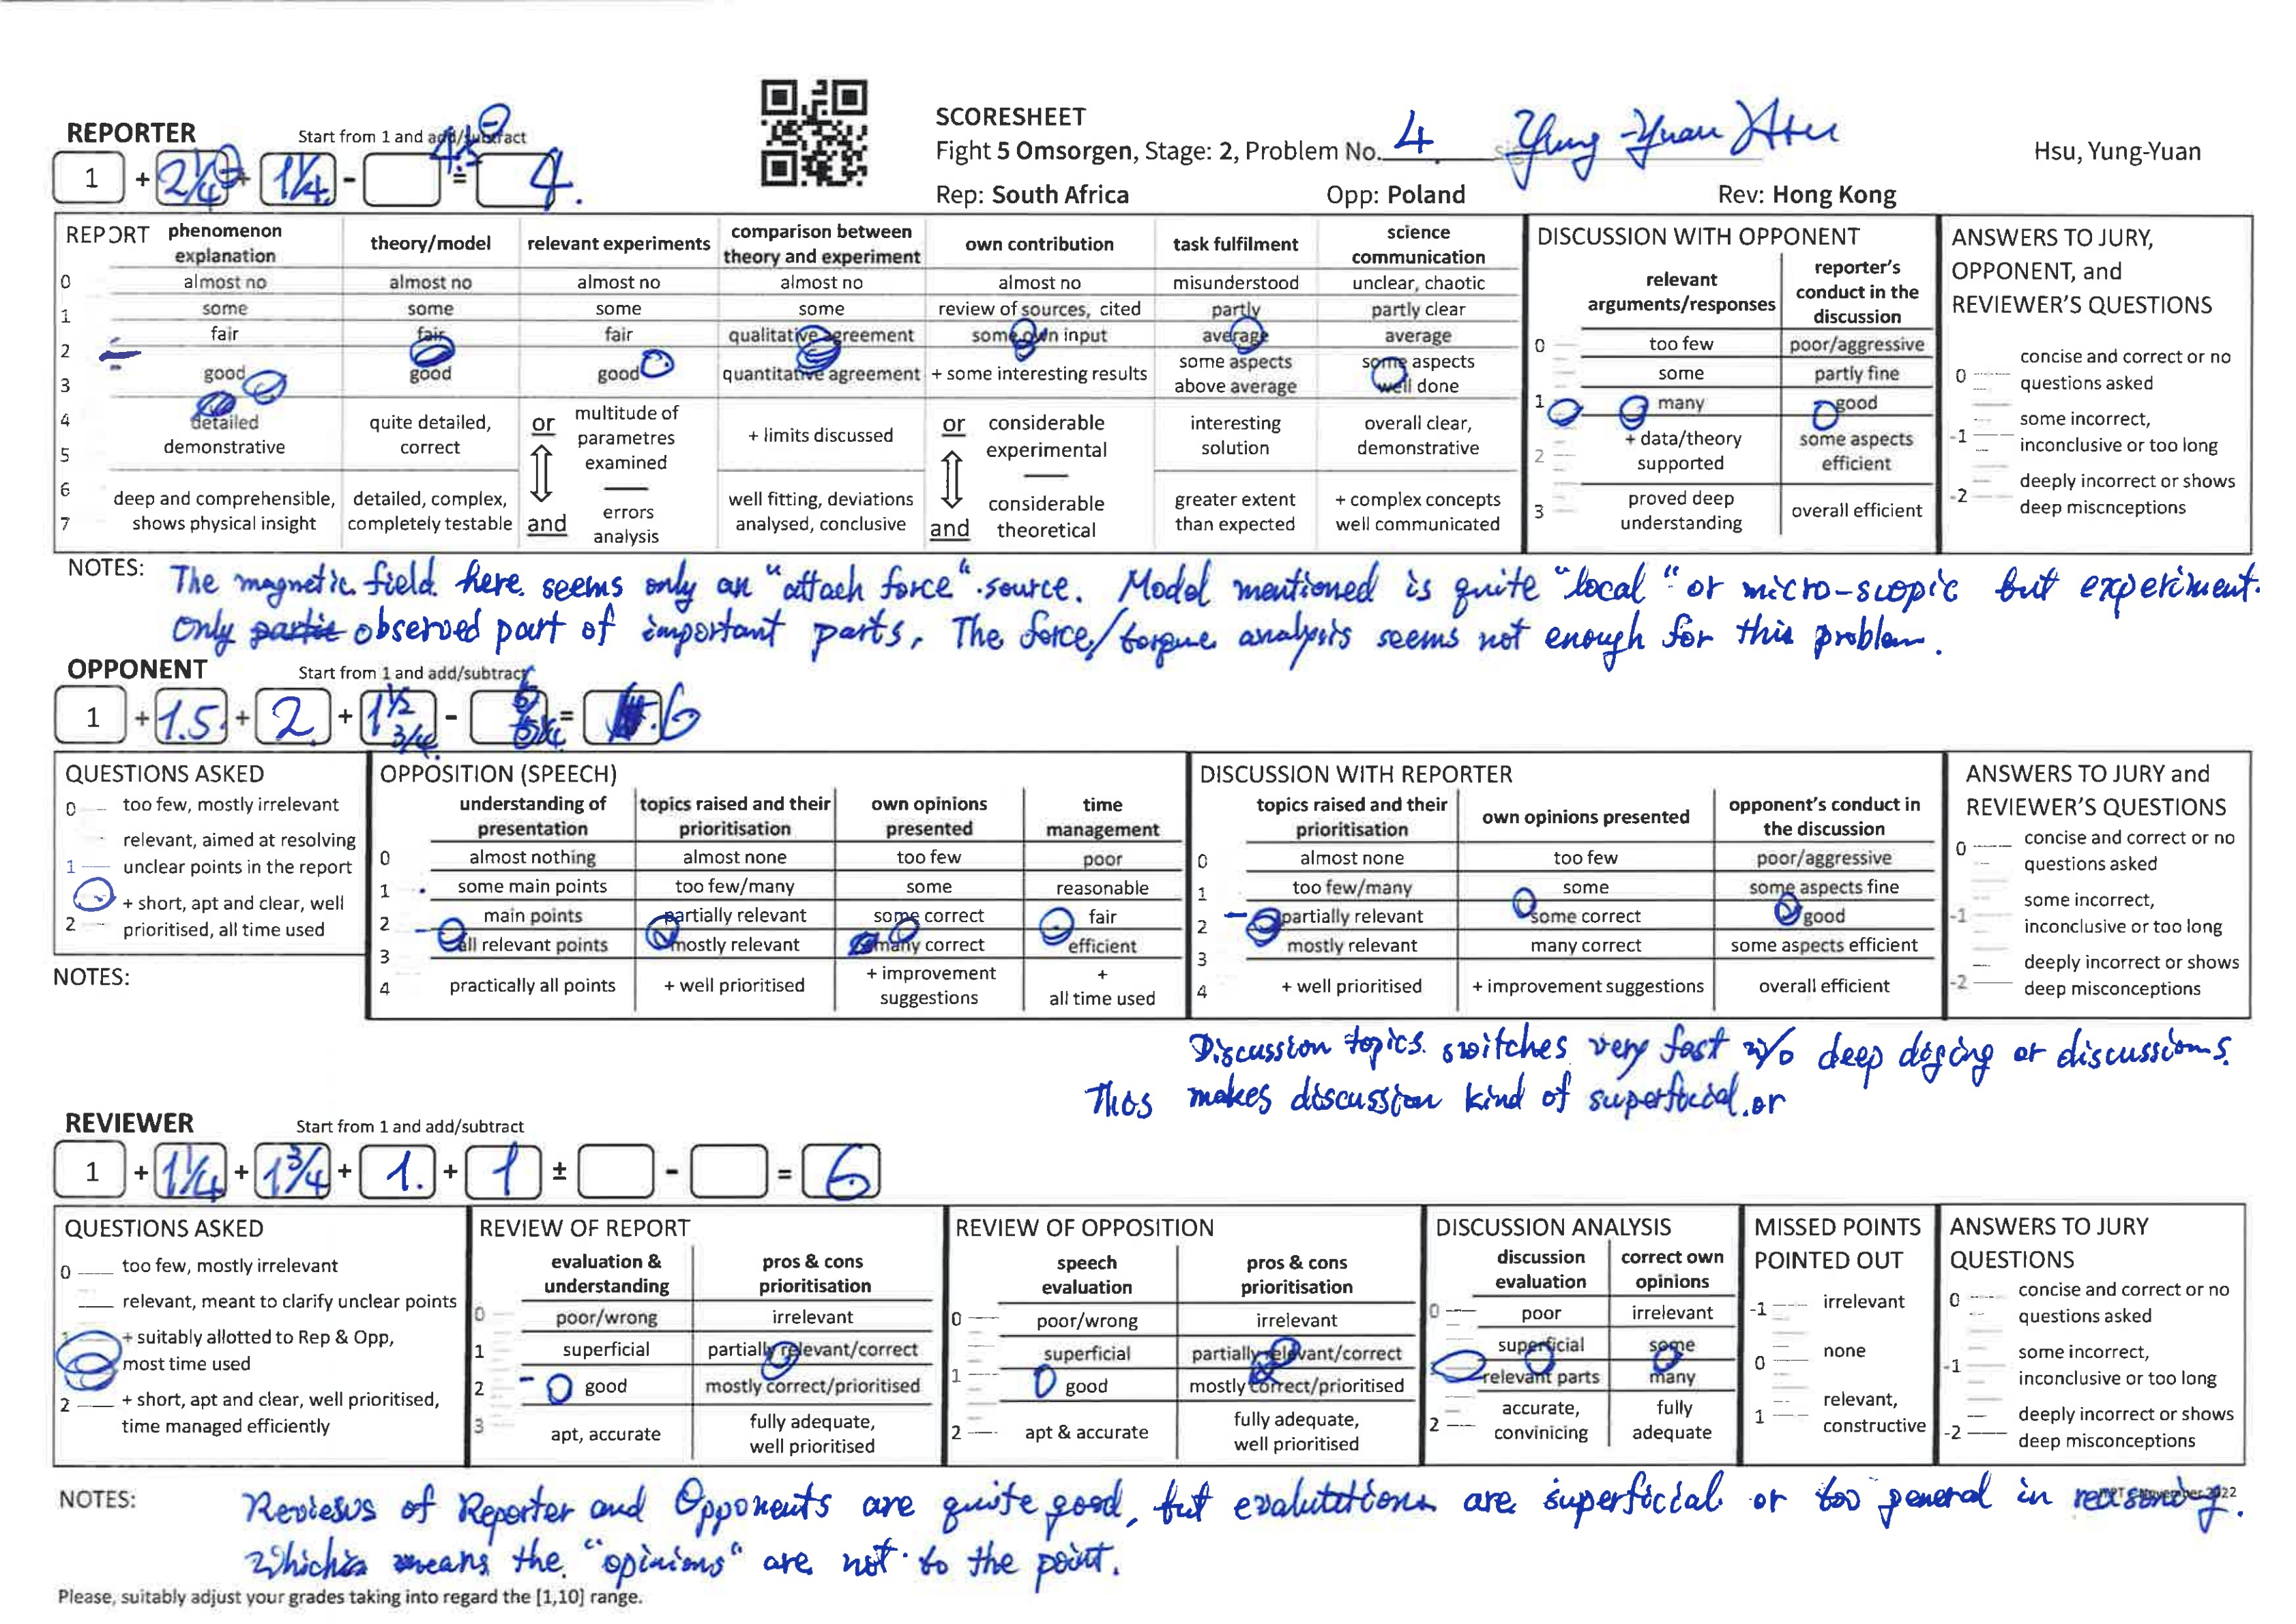 REPORTER Start from 1 and add/subtract
1 + 2 1/4 + 1 1/4 - = 4.
SCORESHEET
Fight 5 Omsorgen, Stage: 2, Problem No. 4 Yung-Yuan Hsu Hsu, Yung-Yuan
Rep: South Africa Opp: Poland Rev: Hong Kong
REPORT phenomenon explanation theory/model relevant experiments comparison between theory and experiment own contribution task fulfilment science communication
0 almost no almost no almost no almost no almost no misunderstood unclear, chaotic
1 some some some some review of sources, cited partly partly clear
2 fair fair fair qualitative agreement some own input average average
3 good good good quantitative agreement + some interesting results some aspects above average some aspects well done
4 detailed
5 demonstrative
quite detailed, correct
or
multitude of parametres examined
+ limits discussed
or
considerable experimental
interesting solution
overall clear, demonstrative
6
7
deep and comprehensible, shows physical insight
detailed, complex, completely testable
and
errors analysis
well fitting, deviations analysed, conclusive
and
considerable theoretical
greater extent than expected
+ complex concepts well communicated
DISCUSSION WITH OPPONENT
relevant arguments/responses reporter's conduct in the discussion
0 too few poor/aggressive
some partly fine
1 many good
2 + data/theory supported some aspects efficient
3 proved deep understanding overall efficient
ANSWERS TO JURY,
OPPONENT, and
REVIEWER'S QUESTIONS
0 concise and correct or no questions asked
-1 some incorrect, inconclusive or too long
-2 deeply incorrect or shows deep miscnceptions
NOTES: The magnetic field here seems only an "attach force" source. Model mentioned is quite "local" or micro-scopic but experiment.
Only observed part of important parts. The force/torque analysis seems not enough for this problem.
OPPONENT Start from 1 and add/subtract
1 + 1.5 + 2 + 1 1/2 3/4 - = 6
QUESTIONS ASKED
0 too few, mostly irrelevant
relevant, aimed at resolving
1 unclear points in the report
+ short, apt and clear, well
2 prioritised, all time used
NOTES:
OPPOSITION (SPEECH)
understanding of presentation topics raised and their prioritisation own opinions presented time management
0 almost nothing almost none too few poor
1 some main points too few/many some reasonable
2 main points partially relevant some correct fair
3 all relevant points mostly relevant many correct efficient
4 practically all points + well prioritised + improvement suggestions + all time used
DISCUSSION WITH REPORTER
topics raised and their prioritisation own opinions presented opponent's conduct in the discussion
0 almost none too few poor/aggressive
1 too few/many some some aspects fine
2 partially relevant some correct good
3 mostly relevant many correct some aspects efficient
4 + well prioritised + improvement suggestions overall efficient
ANSWERS TO JURY and
REVIEWER'S QUESTIONS
0 concise and correct or no questions asked
-1 some incorrect, inconclusive or too long
-2 deeply incorrect or shows deep misconceptions
Discussion topics switches very fast w/o deep digging or discussions.
This makes discussion kind of superficial. or
REVIEWER Start from 1 and add/subtract
1 + 1 1/4 + 1 3/4 + 1. + 1 ± - = 6
QUESTIONS ASKED
0 too few, mostly irrelevant
relevant, meant to clarify unclear points
1 + suitably allotted to Rep & Opp,
most time used
2 + short, apt and clear, well prioritised,
time managed efficiently
REVIEW OF REPORT
evaluation & understanding pros & cons prioritisation
0 poor/wrong irrelevant
1 superficial partially relevant/correct
2 good mostly correct/prioritised
3 apt, accurate fully adequate, well prioritised
REVIEW OF OPPOSITION
speech evaluation pros & cons prioritisation
0 poor/wrong irrelevant
superficial partially relevant/correct
1 good mostly correct/prioritised
2 apt & accurate fully adequate, well prioritised
DISCUSSION ANALYSIS
discussion evaluation correct own opinions
0 poor irrelevant
superficial some
relevant parts many
2 accurate, convinicing fully adequate
MISSED POINTS
POINTED OUT
-1 irrelevant
0 none
1 relevant, constructive
ANSWERS TO JURY
QUESTIONS
0 concise and correct or no questions asked
-1 some incorrect, inconclusive or too long
-2 deeply incorrect or shows deep misconceptions
NOTES: Reviews of Reporter and Opponents are quite good, but evalutations are superficial or too general in reasoning.
Which means the "opinions" are not to the point.
Please, suitably adjust your grades taking into regard the [1,10] range.